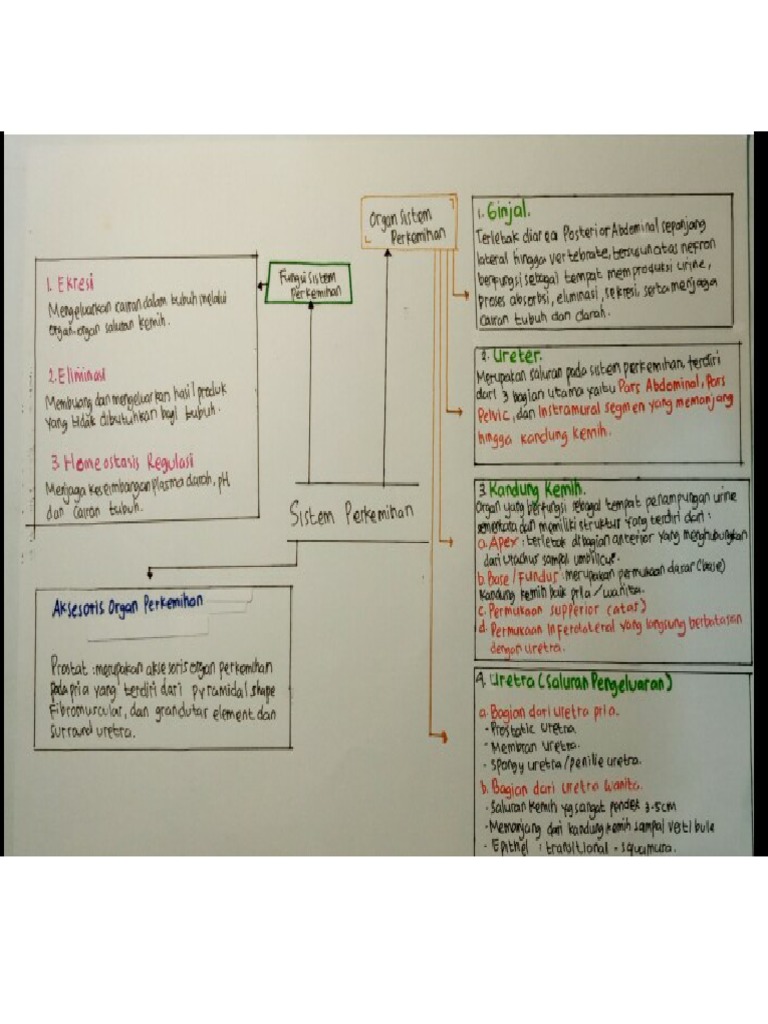 Organ Sistem
Perkemihan
Fungsi Sistem
Perkemihan
1. Ekresi
Mengeluarkan cairan dalam tubuh melalui
organ-organ saluran kemih.
2. Eliminasi
Membuang dan mengeluarkan hasil produk
yang tidak dibutuhkan bagi tubuh.
3. Homeostasis Regulasi
Menjaga keseimbangan plasma darah, pH
dan cairan tubuh.
Sistem Perkemihan
Aksesoris Organ Perkemihan
Prostat : merupakan aksesoris organ perkemihan
pada pria yang terdiri dari pyramidal shape
Fibromuscular, dan grandutar element dan
surround uretra.
1. Ginjal.
Terletak diarea Posterior Abdominal sepanjang
lateral hingga vertebrate, tersusun atas nefron
berfungsi sebagai tempat memproduksi urine,
proses absorbsi, eliminasi, sekresi, serta menjaga
cairan tubuh dan darah.
2. Ureter.
Merupakan saluran pada sistem perkemihan, terdiri
dari 3 bagian utama yaitu Pars Abdominal, Pars
Pelvic, dan Instramural segmen yang memanjang
hingga kandung kemih.
3. Kandung Kemih.
Organ yang berfungsi sebagai tempat penampungan urine
sementara dan memiliki struktur yang terdiri dari :
a. Apex : terletak dibagian anterior yang menghubungkan
dari urachus sampai umbilicus.
b. Base / Fundus : merupakan permukaan dasar (base)
kandung kemih baik pria / wanita.
c. Permukaan supperior (atas)
d. Permukaan Inferolateral yang langsung berbatasan
dengan uretra.
4. Uretra (Saluran Pengeluaran)
a. Bagian dari uretra pria.
- Prostatic uretra.
- Membran uretra.
- Spongy uretra / penilie uretra.
b. Bagian dari uretra wanita.
- Saluran kemih yg sangat pendek 3-5cm
- Memanjang dari kandung kemih sampai vestibule
- Epithel : transitional - squamura.